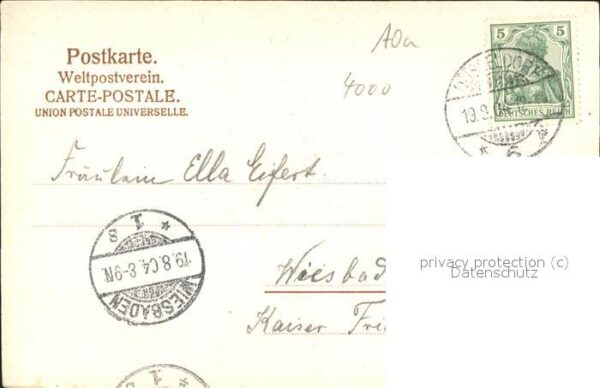 Postkarte.
Weltpostverein.
CARTE-POSTALE.
UNION POSTALE UNIVERSELLE.
A0a
4000
5 5
DEUTSCHES REICH
DÜSSELDORF
19.8.04
* 6 *
Fräulein Ella Eifert.
1 s
19.8.04. 8-9N.
WIESBADEN
Wiesbad
Kaiser Fri
privacy protection (c)
Datenschutz
1